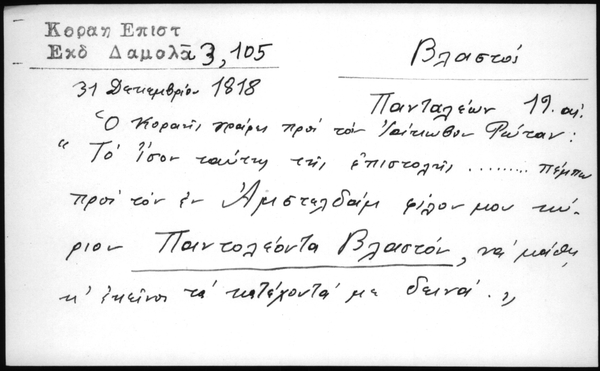 Κοραη Επιστ
Εκδ Δαμολᾶ 3,105
Βλαστοί
31 Δεκεμβρίου 1818
Πανταλέων 19. αἰ.
Ὁ Κοραῆς γράφει πρὸς τὸν Ἰάκωβον Ρώταν:
"Τὸ ἴσον ταύτης τῆς ἐπιστολῆς ......... πέμπω
πρὸς τὸν ἐν Ἀμστελδάμ φίλον μου κύ-
ριον Παντολέοντα Βλαστόν, νὰ μάθῃ
κ' ἐκεῖνος τὰ κατέχοντά με δεινά.„